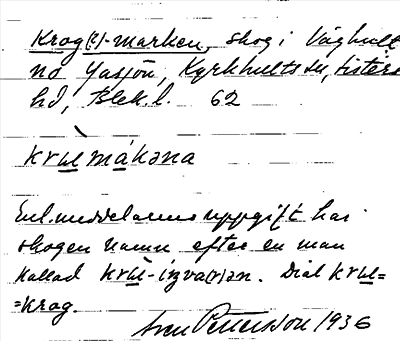 Krog(e)-marken, skog i Våghult
no Gasjön, Kyrkhults sn, Listers
hd, Blek. l. 62
krɯmákəna
Enl. meddelarens uppgift har
skogen namn efter en man
kallad krɯ-iŋva(r)ən. Dial krɯ=
=krog.
Sven Petersson 1936